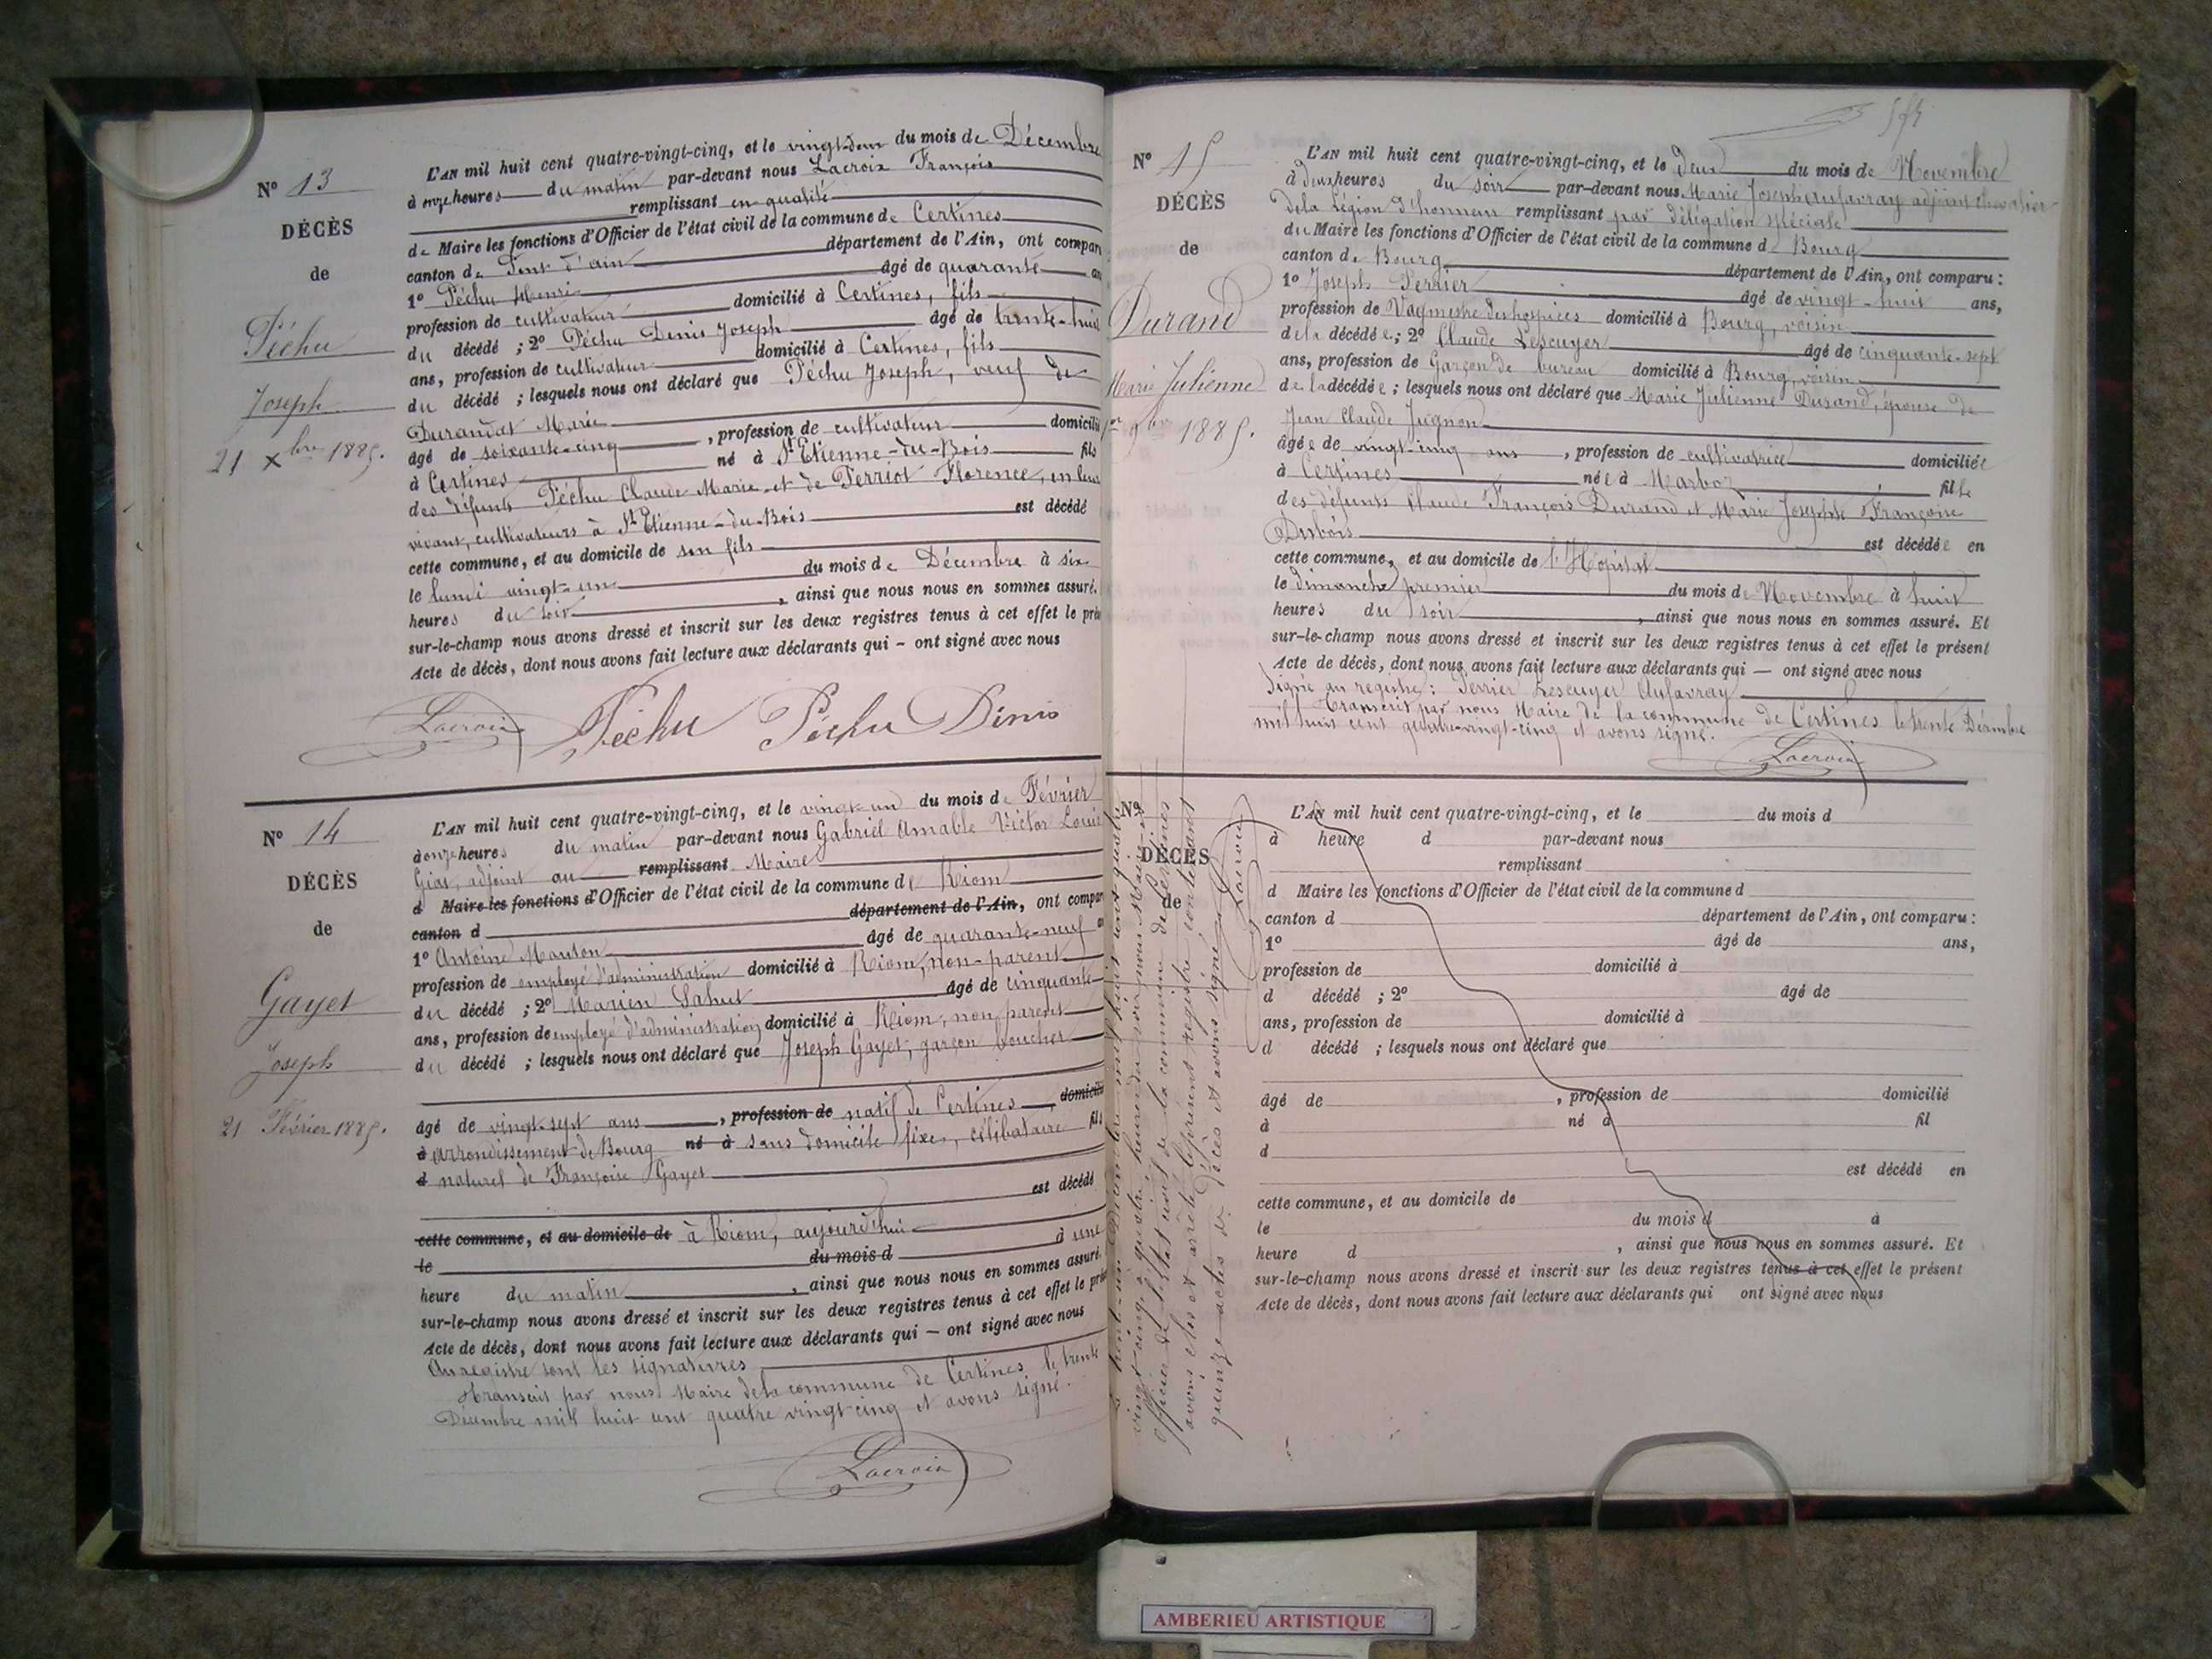 N° 13
DÉCÈS
de
Péchu
Joseph
21 xbre 1885.
L'AN mil huit cent quatre-vingt-cinq, et le vingt-deux du mois de Décembre
à onze heures du matin par-devant nous Lacroix François
remplissant en qualité
de Maire les fonctions d'Officier de l'état civil de la commune de Certines
canton de Pont d'ain département de l'Ain, ont compar
1° Péchu Henri âgé de quarante an
profession de cultivateur domicilié à Certines, fils
du décédé ; 2° Péchu Denis Joseph âgé de trente-huit
ans, profession de cultivateur domicilié à Certines, fils
du décédé ; lesquels nous ont déclaré que Péchu Joseph, veuf de
Durandat Marie
âgé de soixante-cinq , profession de cultivateur domicilié
à Certines né à St Etienne-du-Bois fils
des défunts Péchu Claude Marie et de Perriot Florence, en leur
vivant, cultivateurs à St Etienne-du-Bois est décédé
cette commune, et au domicile de son fils
le lundi vingt-un du mois de Décembre à six
heures du soir , ainsi que nous nous en sommes assuré.
sur-le-champ nous avons dressé et inscrit sur les deux registres tenus à cet effet le pré
Acte de décès, dont nous avons fait lecture aux déclarants qui – ont signé avec nous
Lacroix Péchu Péchu Dinis
N° 14
DÉCÈS
de
Gayet
Joseph
21 Février 1885.
L'AN mil huit cent quatre-vingt-cinq, et le vingt-un du mois de Février
à onze heures du matin par-devant nous Gabriel Amable Victor Louis
Giat, adjoint au remplissant Maire
d Maire les fonctions d'Officier de l'état civil de la commune de Riom
canton d département de l'Ain, ont compar
1° Antoine Mouton âgé de quarante-neuf
profession de employé d'administration domicilié à Riom, non-parent
du décédé ; 2° Marien Sahut âgé de cinquante
ans, profession de employé d'administration domicilié à Riom, non parent
du décédé ; lesquels nous ont déclaré que Joseph Gayet, garçon boucher
âgé de vingt-sept ans , profession de natif de Certines , domicilié
à arrondissement de Bourg né à sans domicile fixe, célibataire fils
d naturel de Françoise Gayet
est décédé
cette commune, et au domicile de à Riom, aujourd'hui
le du mois d à une
heure du matin , ainsi que nous nous en sommes assuré.
sur-le-champ nous avons dressé et inscrit sur les deux registres tenus à cet effet le pré
Acte de décès, dont nous avons fait lecture aux déclarants qui – ont signé avec nous
Au registre sont les signatures
Transcrit par nous Maire de la commune de Certines le trente
Décembre mil huit cent quatre vingt-cinq et avons signé.
Lacroix
N° 15
DÉCÈS
de
Durand
Marie Julienne
1er 9bre 1885.
L'AN mil huit cent quatre-vingt-cinq, et le deux du mois de Novembre
à deux heures du soir par-devant nous Marie Joseph Aufavray adjoint chevalier
de la Légion d'honneur remplissant par délégation spéciale
du Maire les fonctions d'Officier de l'état civil de la commune d Bourg
canton de Bourg département de l'Ain, ont comparu :
1° Joseph Perrier âgé de vingt-huit ans,
profession de Vaguemestre des hospices domicilié à Bourg, voisin
de la décédée ; 2° Claude Lescuyer âgé de cinquante-sept
ans, profession de Garçon de bureau domicilié à Bourg, voisin
de la décédée ; lesquels nous ont déclaré que Marie Julienne Durand, épouse de
Jean Claude Jugnon
âgée de vingt-cinq ans , profession de cultivatrice domiciliée
à Certines née à Marboz fille
des défunts Claude François Durand et Marie Josephte Françoise
Dubois est décédée en
cette commune, et au domicile de l'Hôpital
le dimanche premier du mois de Novembre à huit
heures du soir , ainsi que nous nous en sommes assuré. Et
sur-le-champ nous avons dressé et inscrit sur les deux registres tenus à cet effet le présent
Acte de décès, dont nous avons fait lecture aux déclarants qui — ont signé avec nous
Signé au registre : Perrier Lescuyer Aufavray
Transcrit par nous Maire de la commune de Certines le trente Décembre
mil huit cent quatre-vingt-cinq et avons signé.
Lacroix
N°
DÉCÈS
de
vingt cinq à quatre heures du soir nous Maire et
Officier de l'état civil de la commune de Certines
avons clos et arrêté le présent registre contenant
quinze actes de Décès et avons signé
Lacroix
L'AN mil huit cent quatre-vingt-cinq, et le du mois d
à heure d par-devant nous
remplissant
d Maire les fonctions d'Officier de l'état civil de la commune d
canton d département de l'Ain, ont comparu :
1° âgé de ans,
profession de domicilié à
d décédé ; 2° âgé de
ans, profession de domicilié à
d décédé ; lesquels nous ont déclaré que
âgé de , profession de domicilié
à né à fil
d
est décédé en
cette commune, et au domicile de
le du mois d à
heure d , ainsi que nous nous en sommes assuré. Et
sur-le-champ nous avons dressé et inscrit sur les deux registres tenus à cet effet le présent
Acte de décès, dont nous avons fait lecture aux déclarants qui ont signé avec nous
AMBERIEU ARTISTIQUE